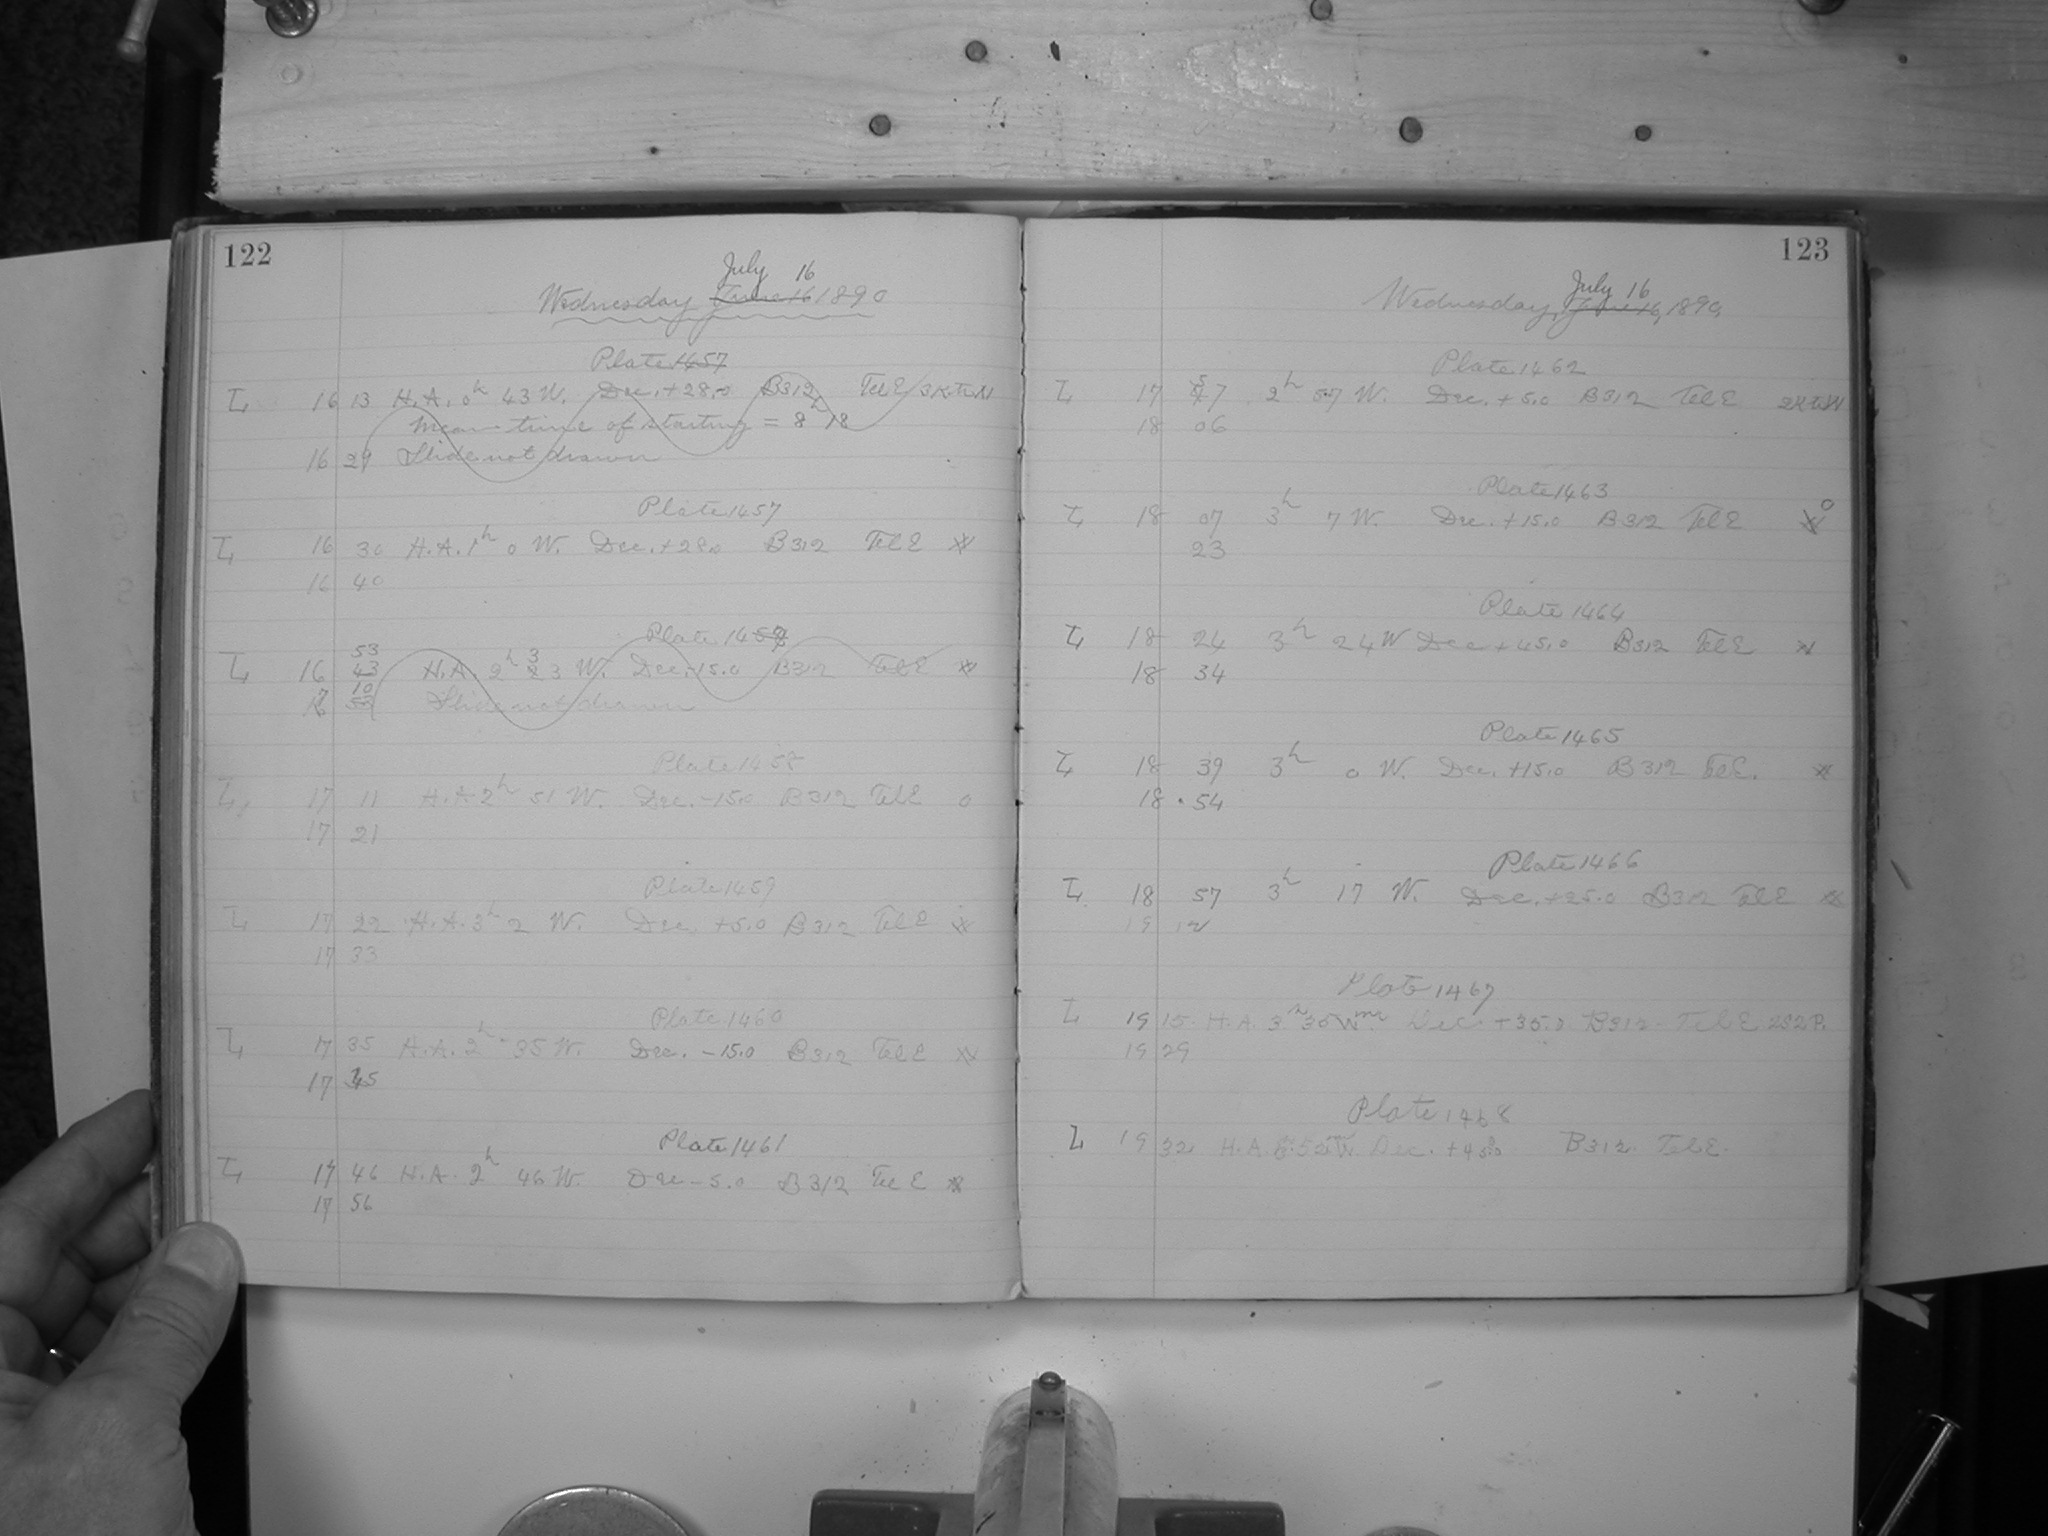 122
July 16
Wednesday June 16 1890
Plate 1457
L 16 13 H.A. 0h 43 W. Dec. +28.0 B312 Tel E
Mean time of starting = 8h 18
16 29 Slide not drawn
Plate 1457
L 16 30 H.A. 1h 0 W. Dec. +28.0 B312 Tel E
16 40
Plate 1458
53
L 16 43 H.A. 2h 3 W. Dec. -15.0 B312 Tel E
10
Slide not drawn
Plate 1458
L 17 11 H.A. 2h 51 W. Dec. -15.0 B312 Tel E 0
17 21
Plate 1459
L 17 22 H.A. 3h 2 W. Dec. +5.0 B312 Tel E
17 33
Plate 1460
L 17 35 H.A. 2h 35 W. Dec. -15.0 B312 Tel E
17 45
Plate 1461
L 17 46 H.A. 2h 46 W. Dec -5.0 B312 Tel E
17 56
123
July 16
Wednesday, June 16, 1890,
Plate 1462
L 17 57 2h 57 W. Dec. +5.0 B312 Tel E
18 06
Plate 1463
L 18 07 3h 7 W. Dec. +15.0 B312 Tel E 0
23
Plate 1464
L 18 24 3h 24 W Dec +45.0 B312 Tel E
18 34
Plate 1465
L 18 39 3h 0 W. Dec. +15.0 B312 Tel E.
18 54
Plate 1466
L 18 57 3h 17 W. Dec. +25.0 B312 Tel E
19 12
Plate 1467
L 19 15 H.A. 3h 35m W Dec. +35.0 B312. Tel E 282P.
19 29
Plate 1468
L 19 32 H.A. Dec. +45.0 B312. Tel E.